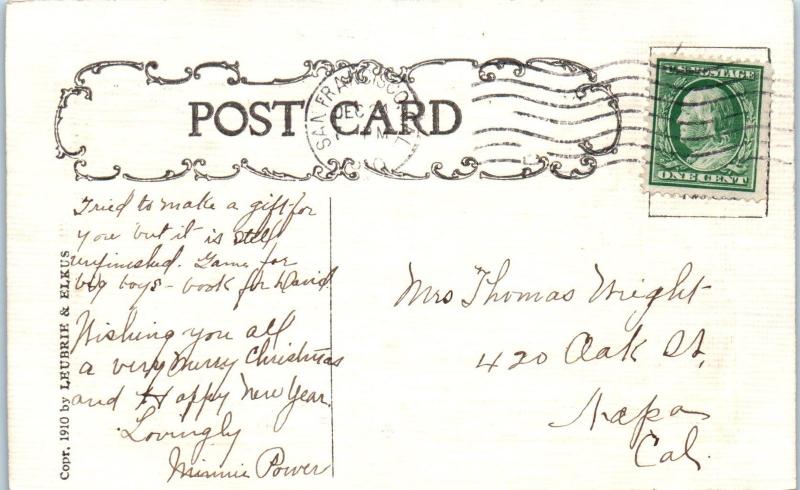 POST CARD
SAN FRANCISCO, CAL.
DEC
M
U.S. POSTAGE
ONE CENT
Tried to make a gift for
you but it is still
unfinished. Game for
big boys - book for David.
Wishing you all
a very Merry Christmas
and Happy New Year.
Lovingly
Minnie Power
Mrs Thomas Wright
420 Oak St,
Napa
Cal.
Copr. 1910 by LEUBRIE & ELKUS